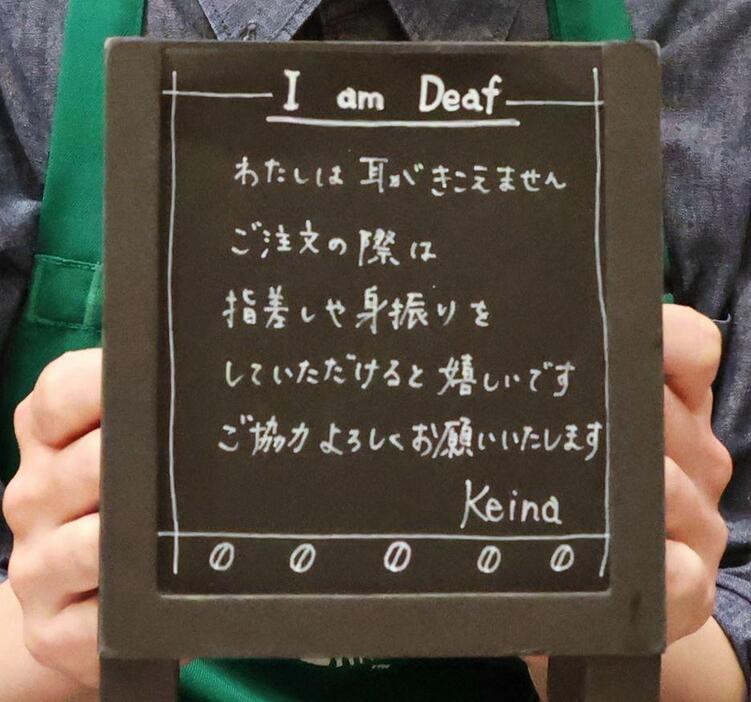 I am Deaf
わたしは耳がきこえません
ご注文の際は
指差しや身振りを
していただけると嬉しいです
ご協力よろしくお願いいたします
Keina